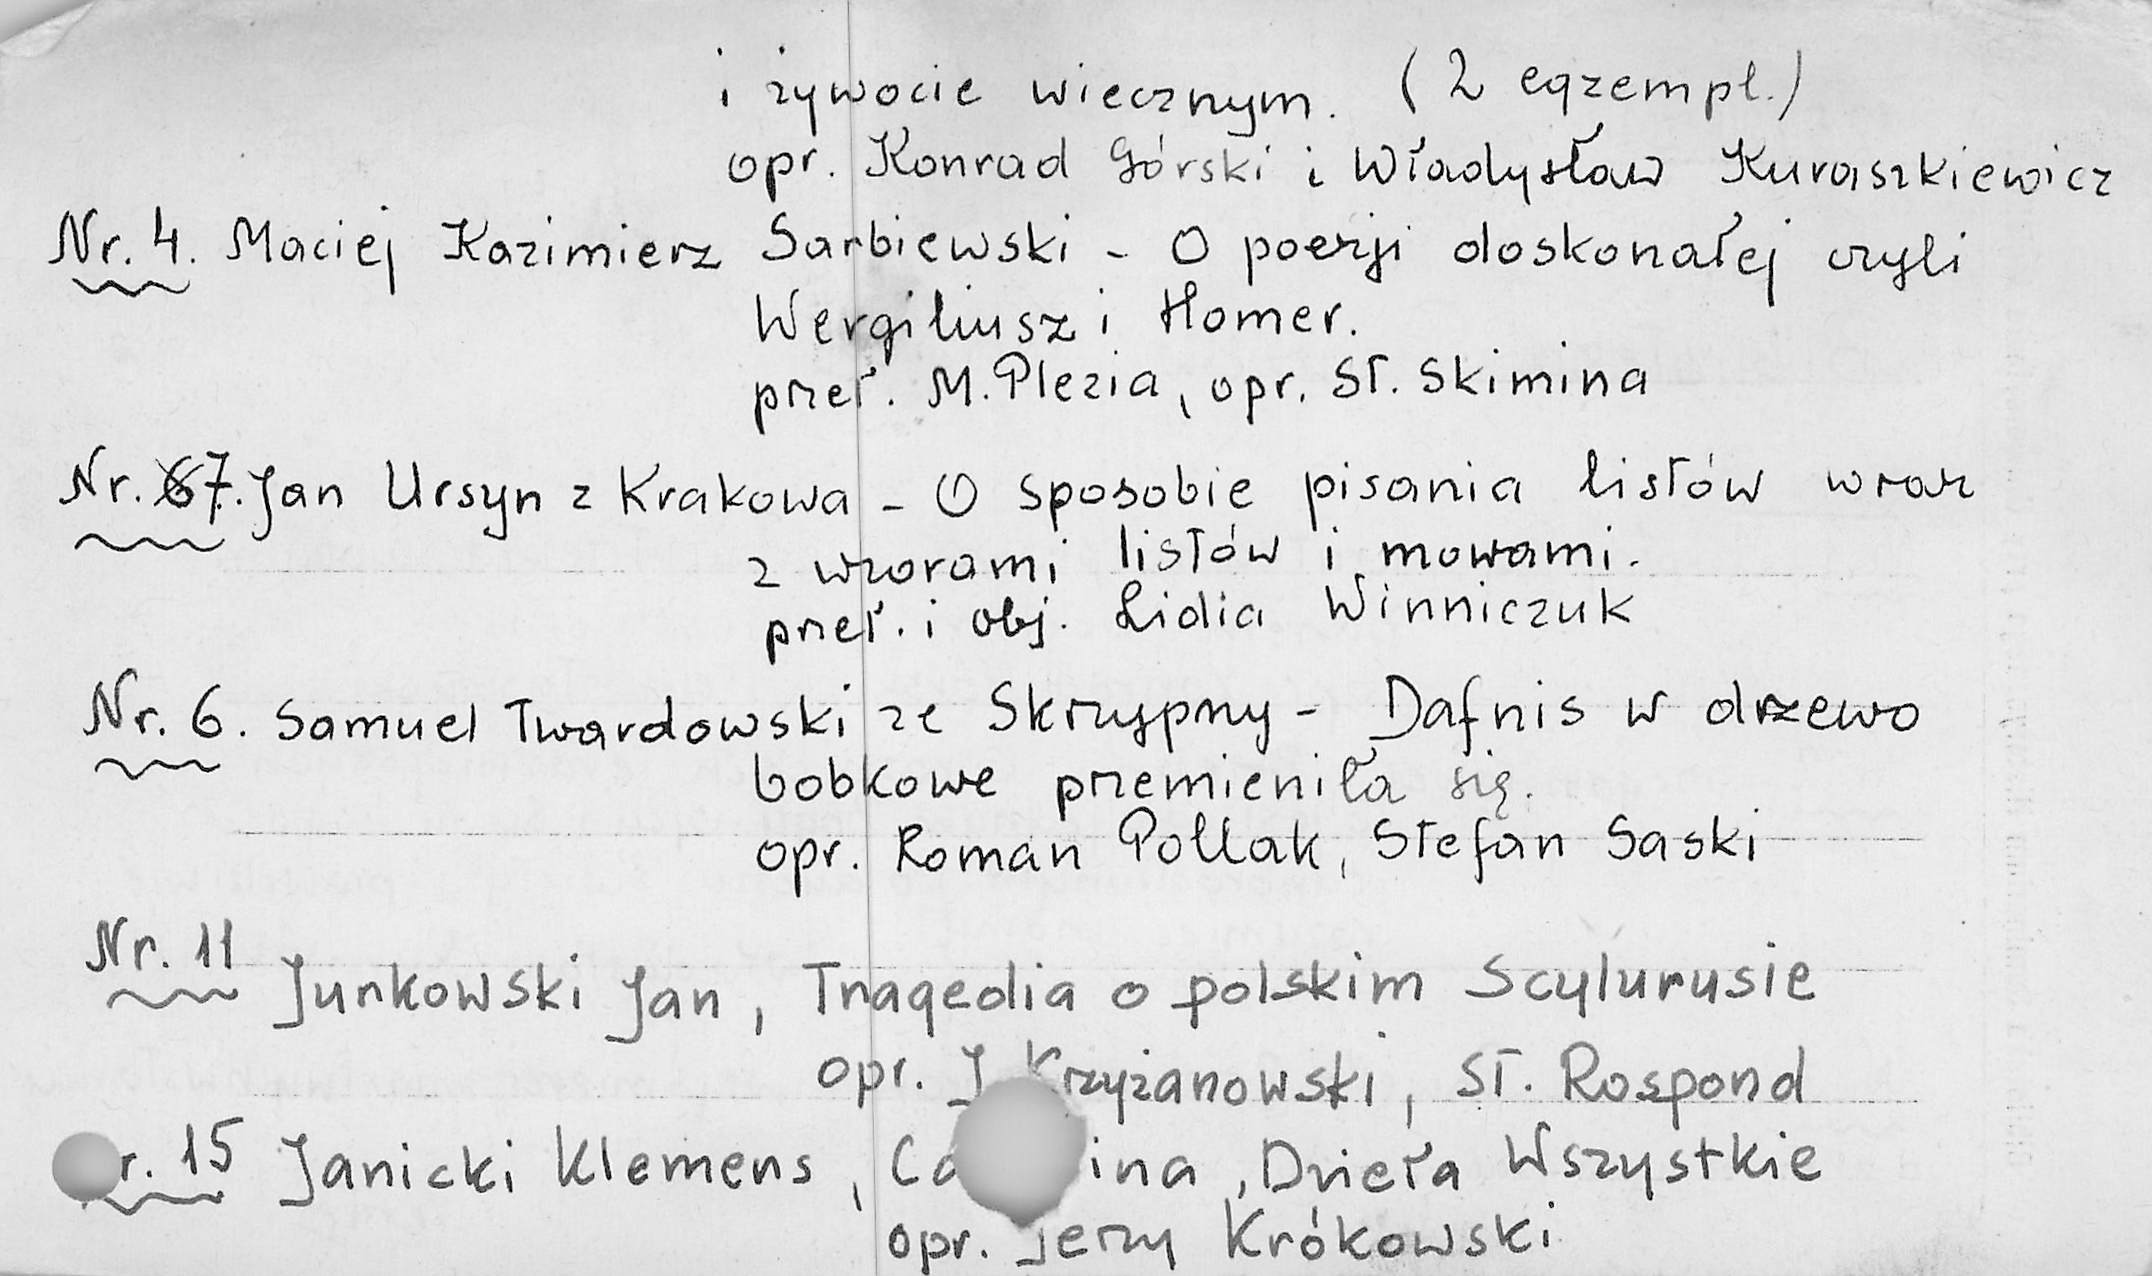 i żywocie wiecznym. (2 egzempl.)
opr. Konrad Górski i Władysław Kuraszkiewicz
Nr. 4. Maciej Kazimierz Sarbiewski - O poezji doskonałej czyli
Wergiliusz i Homer.
przeł. M. Plezia, opr. St. Skimina
Nr. 7. Jan Ursyn z Krakowa - O sposobie pisania listów wraz
z wzorami listów i mowami.
przeł. i obj. Lidia Winniczuk
Nr. 6. Samuel Twardowski ze Skrzypny - Dafnis w drzewo
bobkowe przemieniła się.
opr. Roman Pollak, Stefan Saski
Nr. 11 Junkowski Jan, Tragedia o polskim Scylurusie
opr. J Krzyżanowski, St. Rospond
r. 15 Janicki Klemens, Ca ina, Dzieła Wszystkie
opr. Jerzy Krókowski